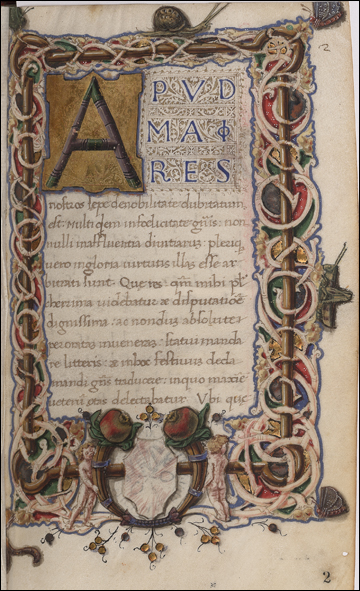 2
A
PVD
MAIO
RES
nostros sepe de nobilitate dubitatum
est. Multi qdem in foelicitate gñis: non
nulli in affluentia diuitiarum: pleriq;
uero in gloria uirtutis illas esse ar
bitrati sunt. Que res: qm mihi pl
cherrima uidebatur ac disputatiõe
dignissima: ac nondus absolute
munera: statui manda
re litteris: ac in hoc festiuius decla
mandi gñs traducere: in quo maxie
ueterũ etas delectabatur. Vbi que
2